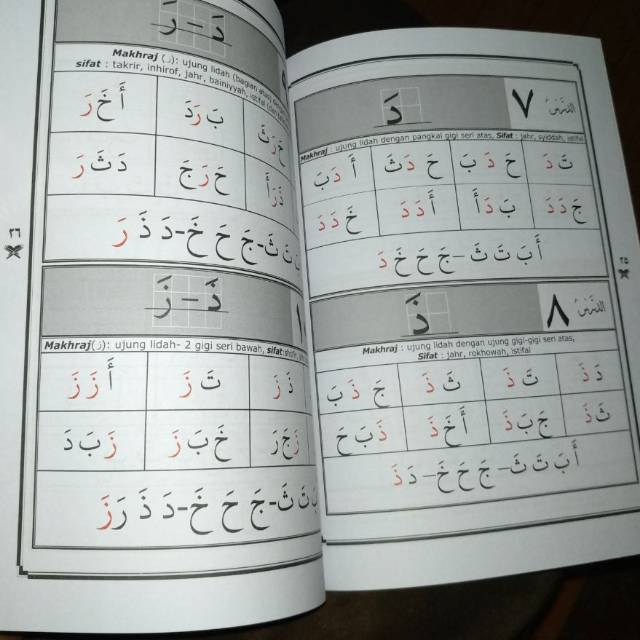 الدرس ٧
دَ
Makhraj : ujung lidah dengan pangkal gigi seri atas, Sifat : jahr, syiddah, istifal
تَ دَ حَ دَ بَ حَ دَ ثَ أَ دَ بَ
جَ دَ دَ بَ دَ أَ أَ دَ دَ خَ دَ دَ
أَ بَ تَ ثَ – جَ حَ خَ دَ
٢٥
الدرس ٨
ذَ
Makhraj : ujung lidah dengan ujung gigi-gigi seri atas,
Sifat : jahr, rokhowah, istifal
دَ ذَ تَ ذَ ثَ ذَ جَ ذَ بَ
ثَ ذَ جَ بَ ذَ أَ خَ ذَ ذَ بَ حَ
أَ بَ تَ ثَ – جَ حَ خَ – دَ ذَ
دَ – رَ
Makhraj (ر): ujung lidah (bagian atas)
sifat : takrir, inhirof, jahr, bainiyyah,
بَ رَ دَ أَ خَ رَ
ذَ رَ أَ حَ رَ جَ دَ ثَ رَ
تَ ثَ – جَ حَ خَ – دَ ذَ رَ
٢٦
ذَ – زَ
Makhraj(ز): ujung lidah- 2 gigi seri bawah, sifat:
ذَ زَ تَ زَ أَ زَ زَ
زَ جَ رَ خَ بَ زَ زَ بَ دَ
بَ تَ ثَ – جَ حَ خَ – دَ ذَ رَ زَ